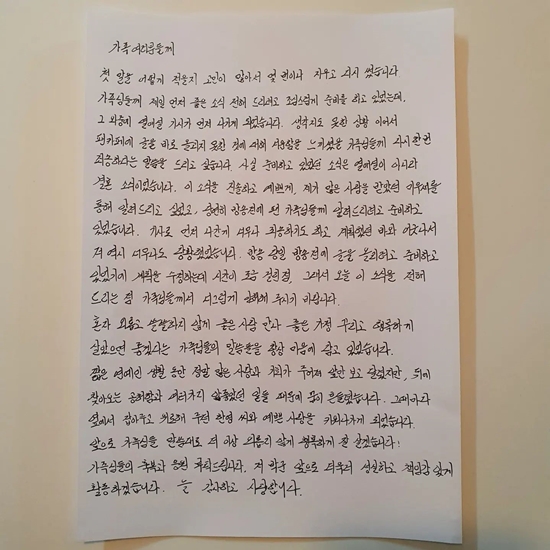 가족 여러분들께
첫 말을 어떻게 적을지 고민이 많아서 몇 번이나 지우고 다시 썼습니다
가족님들께 제일 먼저 좋은 소식 전해 드리려고 조심스럽게 준비를 하고 있었는데,
그 와중에 열애설 기사가 먼저 나가게 되었습니다. 생각지도 못한 상황 이어서
팬카페에 글을 바로 올리지 못한 것에 대해 서운함을 느끼셨을 가족님들께 다시 한번
죄송하다는 말씀을 드리고 싶습니다. 사실 준비하고 있었던 소식은 열애설이 아니라
결혼 소식이었습니다. 이 소식을 진솔하고 예쁘게, 제가 많은 사랑을 받았던 거우새를
통해 알려드리고 싶었고, 당연히 방송전에 먼저 가족님들께 알려드리려고 준비하고
있었습니다. 기사로 먼저 나간게 너무나 죄송하기도 하고 계획했던 바와 어긋나서
저 역시 너무나도 당황했었습니다. 방송 당일 방송전에 글을 올리려고 준비하고
있었기에 계획을 수정하는데 시간이 조금 걸린점, 그래서 오늘 이 소식을 전해
드리는 점 가족님들께서 너그럽게 이해해 주시기 바랍니다.
혼자 외롭고 쓸쓸하지 않게 좋은 사람 만나 좋은 가정 꾸리고 행복하게
살았으면 좋겠다는 가족님들의 말씀들을 항상 마음에 담고 있었습니다.
짧은 연예인 생활 동안 정말 많은 사랑과 기회가 주어져 앞만 보고 달렸지만, 뒤에
찾아오는 공허함과 여러가지 안좋았던 일들 때문에 많이 흔들렸습니다. 그때마다
옆에서 잡아주고 위로해 주던 한영 씨와 예쁜 사랑을 키워나가게 되었습니다.
앞으로 가족님들 말씀대로 더 이상 외롭지 않게 행복하게 잘 살겠습니다!
가족님들의 축복과 응원 부탁드립니다. 저 박군 앞으로 더욱더 성실하고 책임감 있게
활동하겠습니다. 늘 감사하고 사랑합니다.